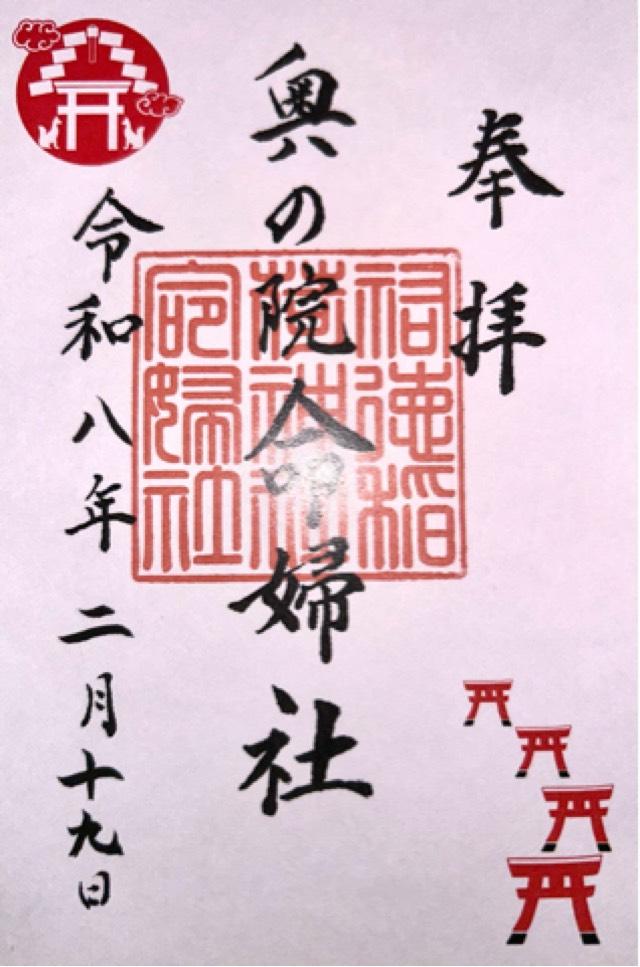 奉拝
奥の院命婦社
令和八年二月十九日
祐徳稲
荷神社
命婦社